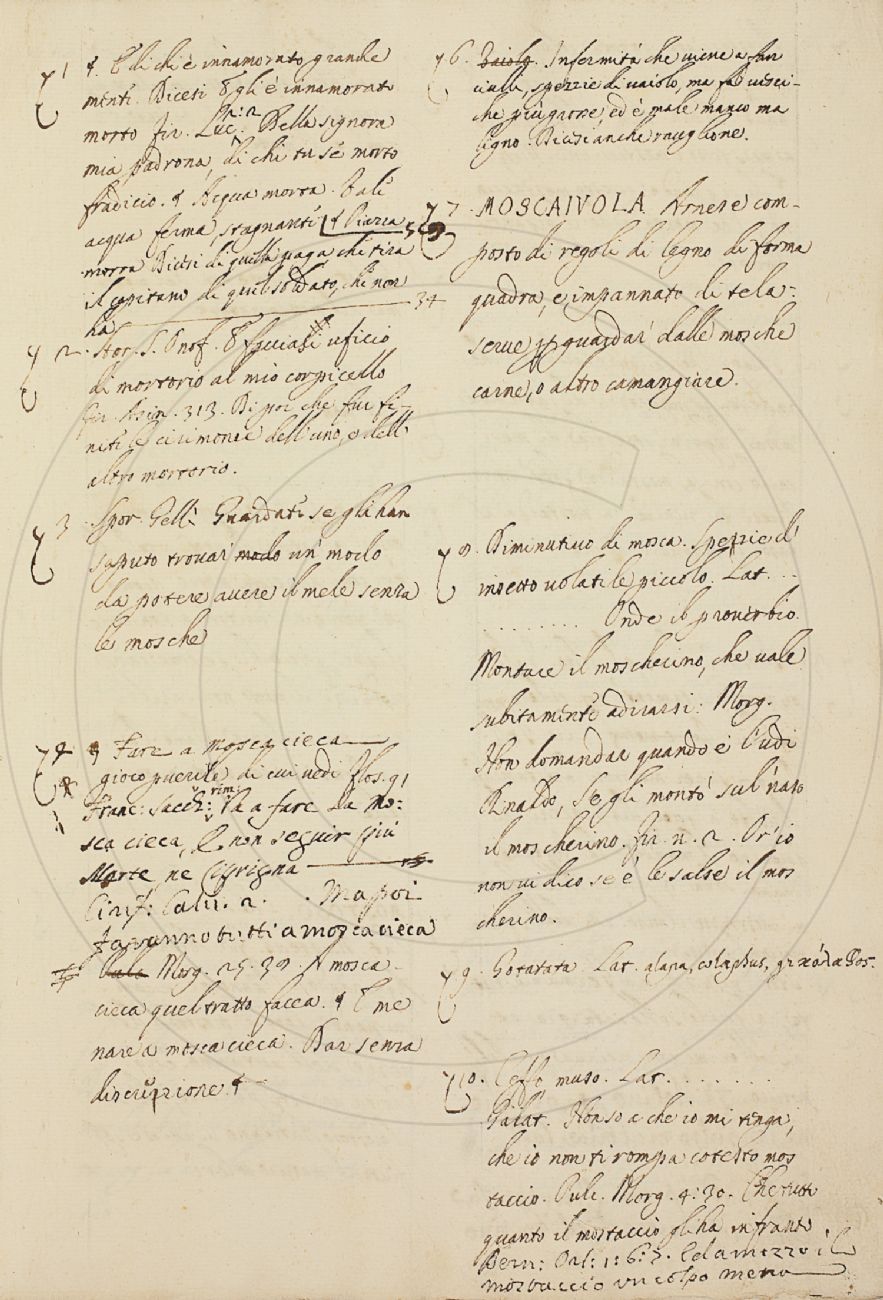 1 ¶. E di chi è innamorato grande
menti. Dicesi Egli è innamorato
morto fir. Luc. 2:2 Bella signora
mia padrona, di chi tu sé morto
fradicio. ¶ Acqua morta. Vale
acqua ferma, stagnante ¶ Piazza
morta Dicesi di quella paga che tira
il capitano di quel soldato, che non
ha 34
2. Nov. S. Onof. E facciasi uficio
di mortorio al mio corpicello
fir. Asin. 313. Di poi che fur fi-
niti le cirimonie dell'uno, e dell'
altro mortorio.
3 Spor. Gelli Guardate se gli han
saputo trovar modo un' modo
da potere avere il mele senza
le mosche
4 Fare a mosca cieca
gioco puerile di cui vedi flos. 91
Franc: Sacch: rim. Va a fare la mo:
sca cieca, E non seguir più
Marte ne Ciprigna
Ciriff: Calv. 2. Ma poi
facanno tutti a mosca cieca
Morg. 25. 39. A mosca
cieca quel tratto facea. ¶ E me
nare a mosca cieca. Dar senza
discrezione ¶
6. Vaiolo. Infermità che viene a fan
ciulli, spezzie di vaiolo, ma fa vesci-
che più grosse, ed è male manco ma
ligno. Dicesi anche ravaglione.
7 MOSCAIVOLA Arnese com-
posto di regoli di legno di forma
quadra, e impannato di tela:
serve p guardar' dalle mosche
carne, o altro camangiare.
8. Diminutivo di mosca. Spezzie d'
insetto volatile piccolo. Lat. . .
. . . . . . . . Onde il proverbio
Montare il moscherino, che vale
subitamente adirarsi: Morg.
Non domandar quando e' l'udi
Rinaldo, Se gli montò sul naso
il moscherino. fir. n. 2. Or' io
non vi dico se è le salse il mos
cherino.
9. Gotatata Lat. alapa, colaphus,
10. Ceffo, muso. Lat. . . . . . . .
Galat. Non so a che io mi tenga,
che io non ti rompa cotesto mos
taccio. Pulc. Morg. 4:30. Che tutto
quanto il mostaccio gli ha infranto
Bern: Orl: 1: 6: 7. Ed a mezzo il
mostaccio un colpo mena